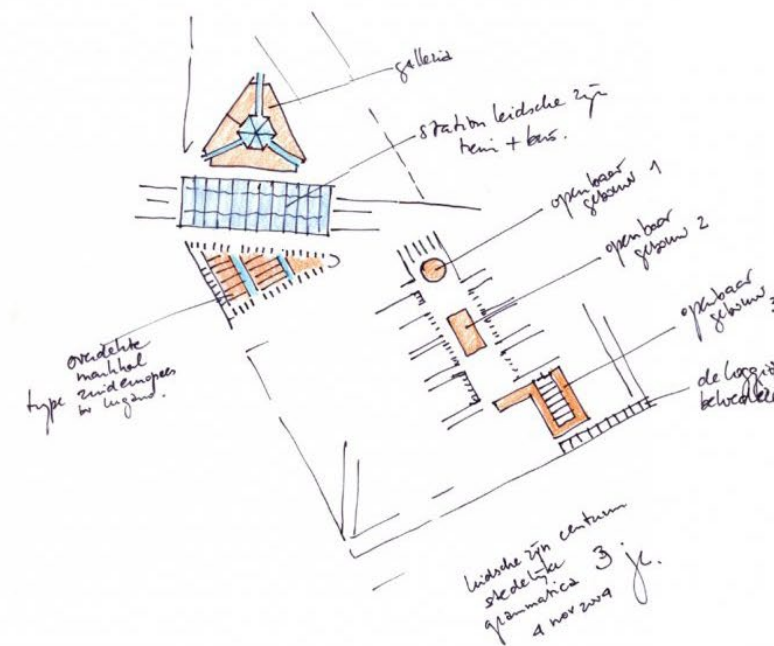 galleria
station leidsche rijn
trein + bus.
openbaar
gebouw 1
openbaar
gebouw 2
openbaar
gebouw 3
de loggia
overdekte
markthal
type zuideuropees
bv lugano.
leidsche rijn centrum
stedelijke 3 jc.
grammatica
4 nov 2004